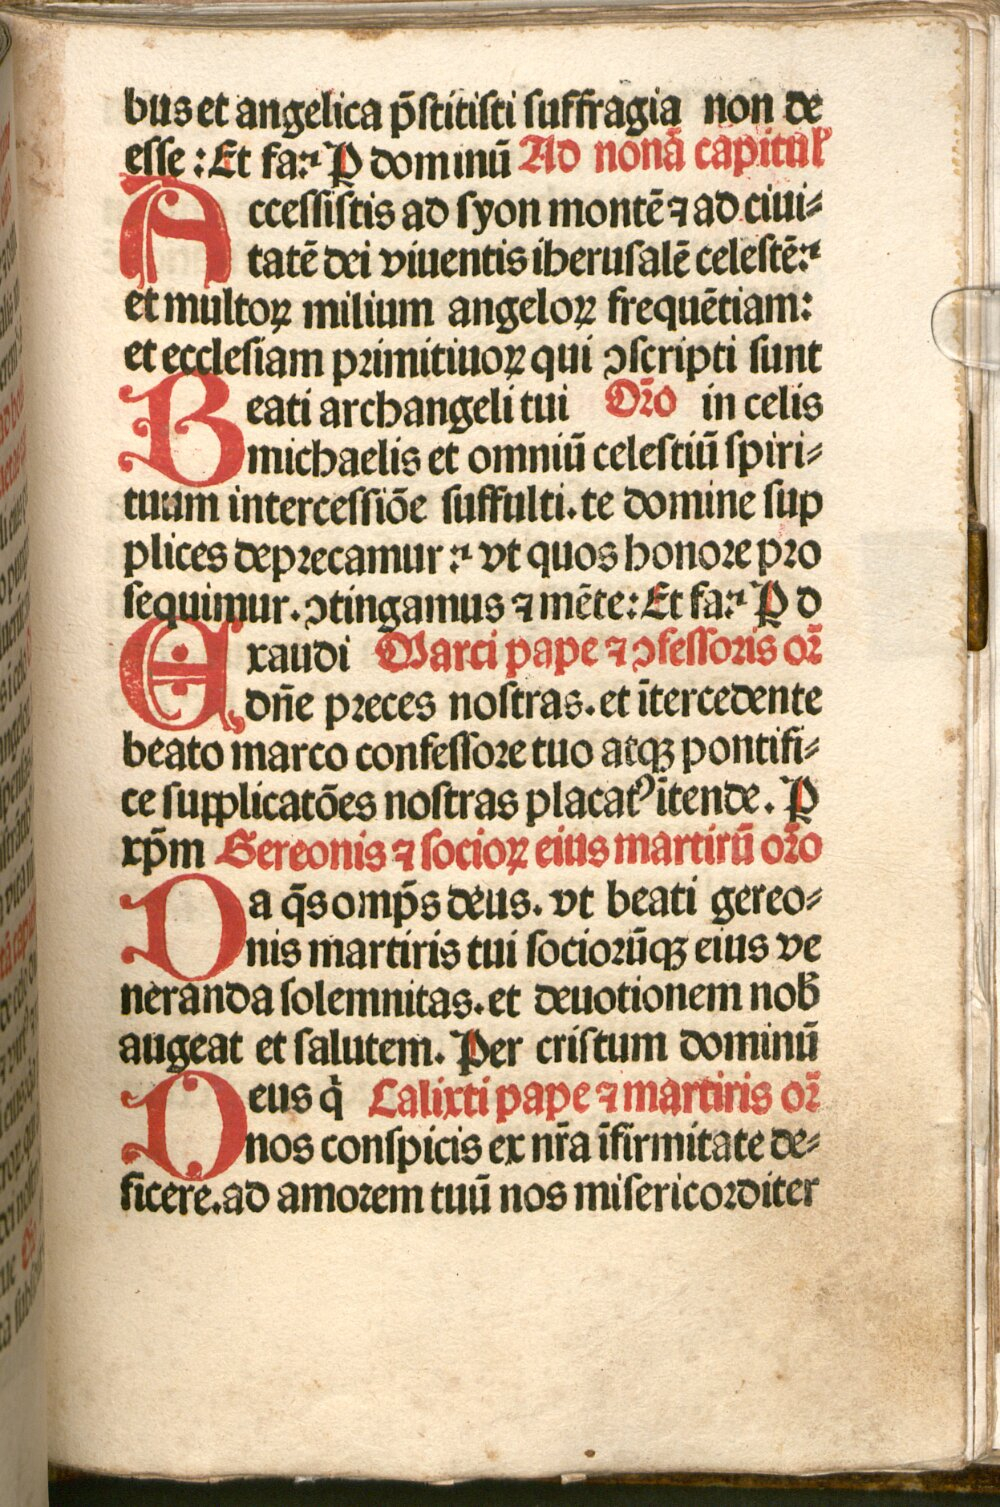 bus et angelica p̄stitisti suffragia non de
esse : Et fa⁊ P dominū Ad nonā capitul'
Accessistis ad syon montē ⁊ ad ciui⸗
tatē dei viuentis iherusalē celestē:⁊
et multoꝝ milium angeloꝝ frequētiam:
et ecclesiam primitiuoꝝ qui ꝯscripti sunt
Beati archangeli tui Oꝛ̄o in celis
michaelis et omniū celestiū spiri⸗
tuum intercessiōe suffulti. te domine sup
plices depꝛecamur :⁊ vt quos honoꝛe pꝛo
sequimur. ꝯtingamus ⁊ mēte: Et fa⁊ P d
Exaudi Marci pape ⁊ ꝯfessoꝛis oꝛ̄
dn̄e pꝛeces nostras. et ītercedente
beato marco confessoꝛe tuo atqꝫ pontifi⸗
ce supplicatōes nostras placatꝰ ītende. P
xp̄m Gereonis ⁊ socioꝝ eius martirū oꝛ̄o
Da q̄s omp̄s deus. vt beati gereo⸗
nis martiris tui socioꝛūqꝫ eius ve
neranda solemnitas. et deuotionem nob̄
augeat et salutem. Per cristum dominū
Deus qͥ Calixti pape ⁊ martiris oꝛ̄
nos conspicis ex nr̄a īfirmitate de⸗
ficere. ad amoꝛem tuū nos misericoꝛditer